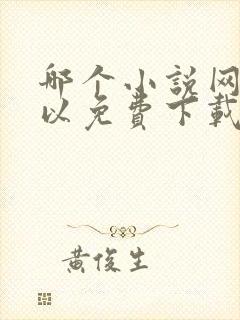 哪个小说网
以免费下载
黄俊生